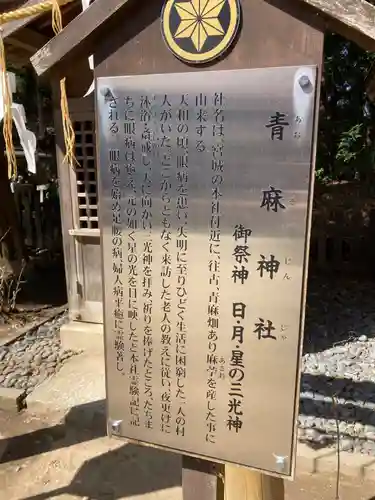 青麻神社
あお そ じん じゃ
御祭神　日・月・星の三光神
社名は、宮城の本社付近に、往古、青麻畑あり麻苧を産した事に
あさお
由来する。
大和の頃、眼病を患い、失明に至りひどく生活に困窮した一人の村
人がいた。どこからともなく来訪した老人の教えに従い、夜更けに
沐浴斎戒し、天に向かい三光神を拝み、祈りを捧げたところ、たちま
ちに眼病は癒え、元の如く星の光を目に映したと本社霊験記に
記される。眼病を始め足腰の病、婦人病平癒に霊験著し。